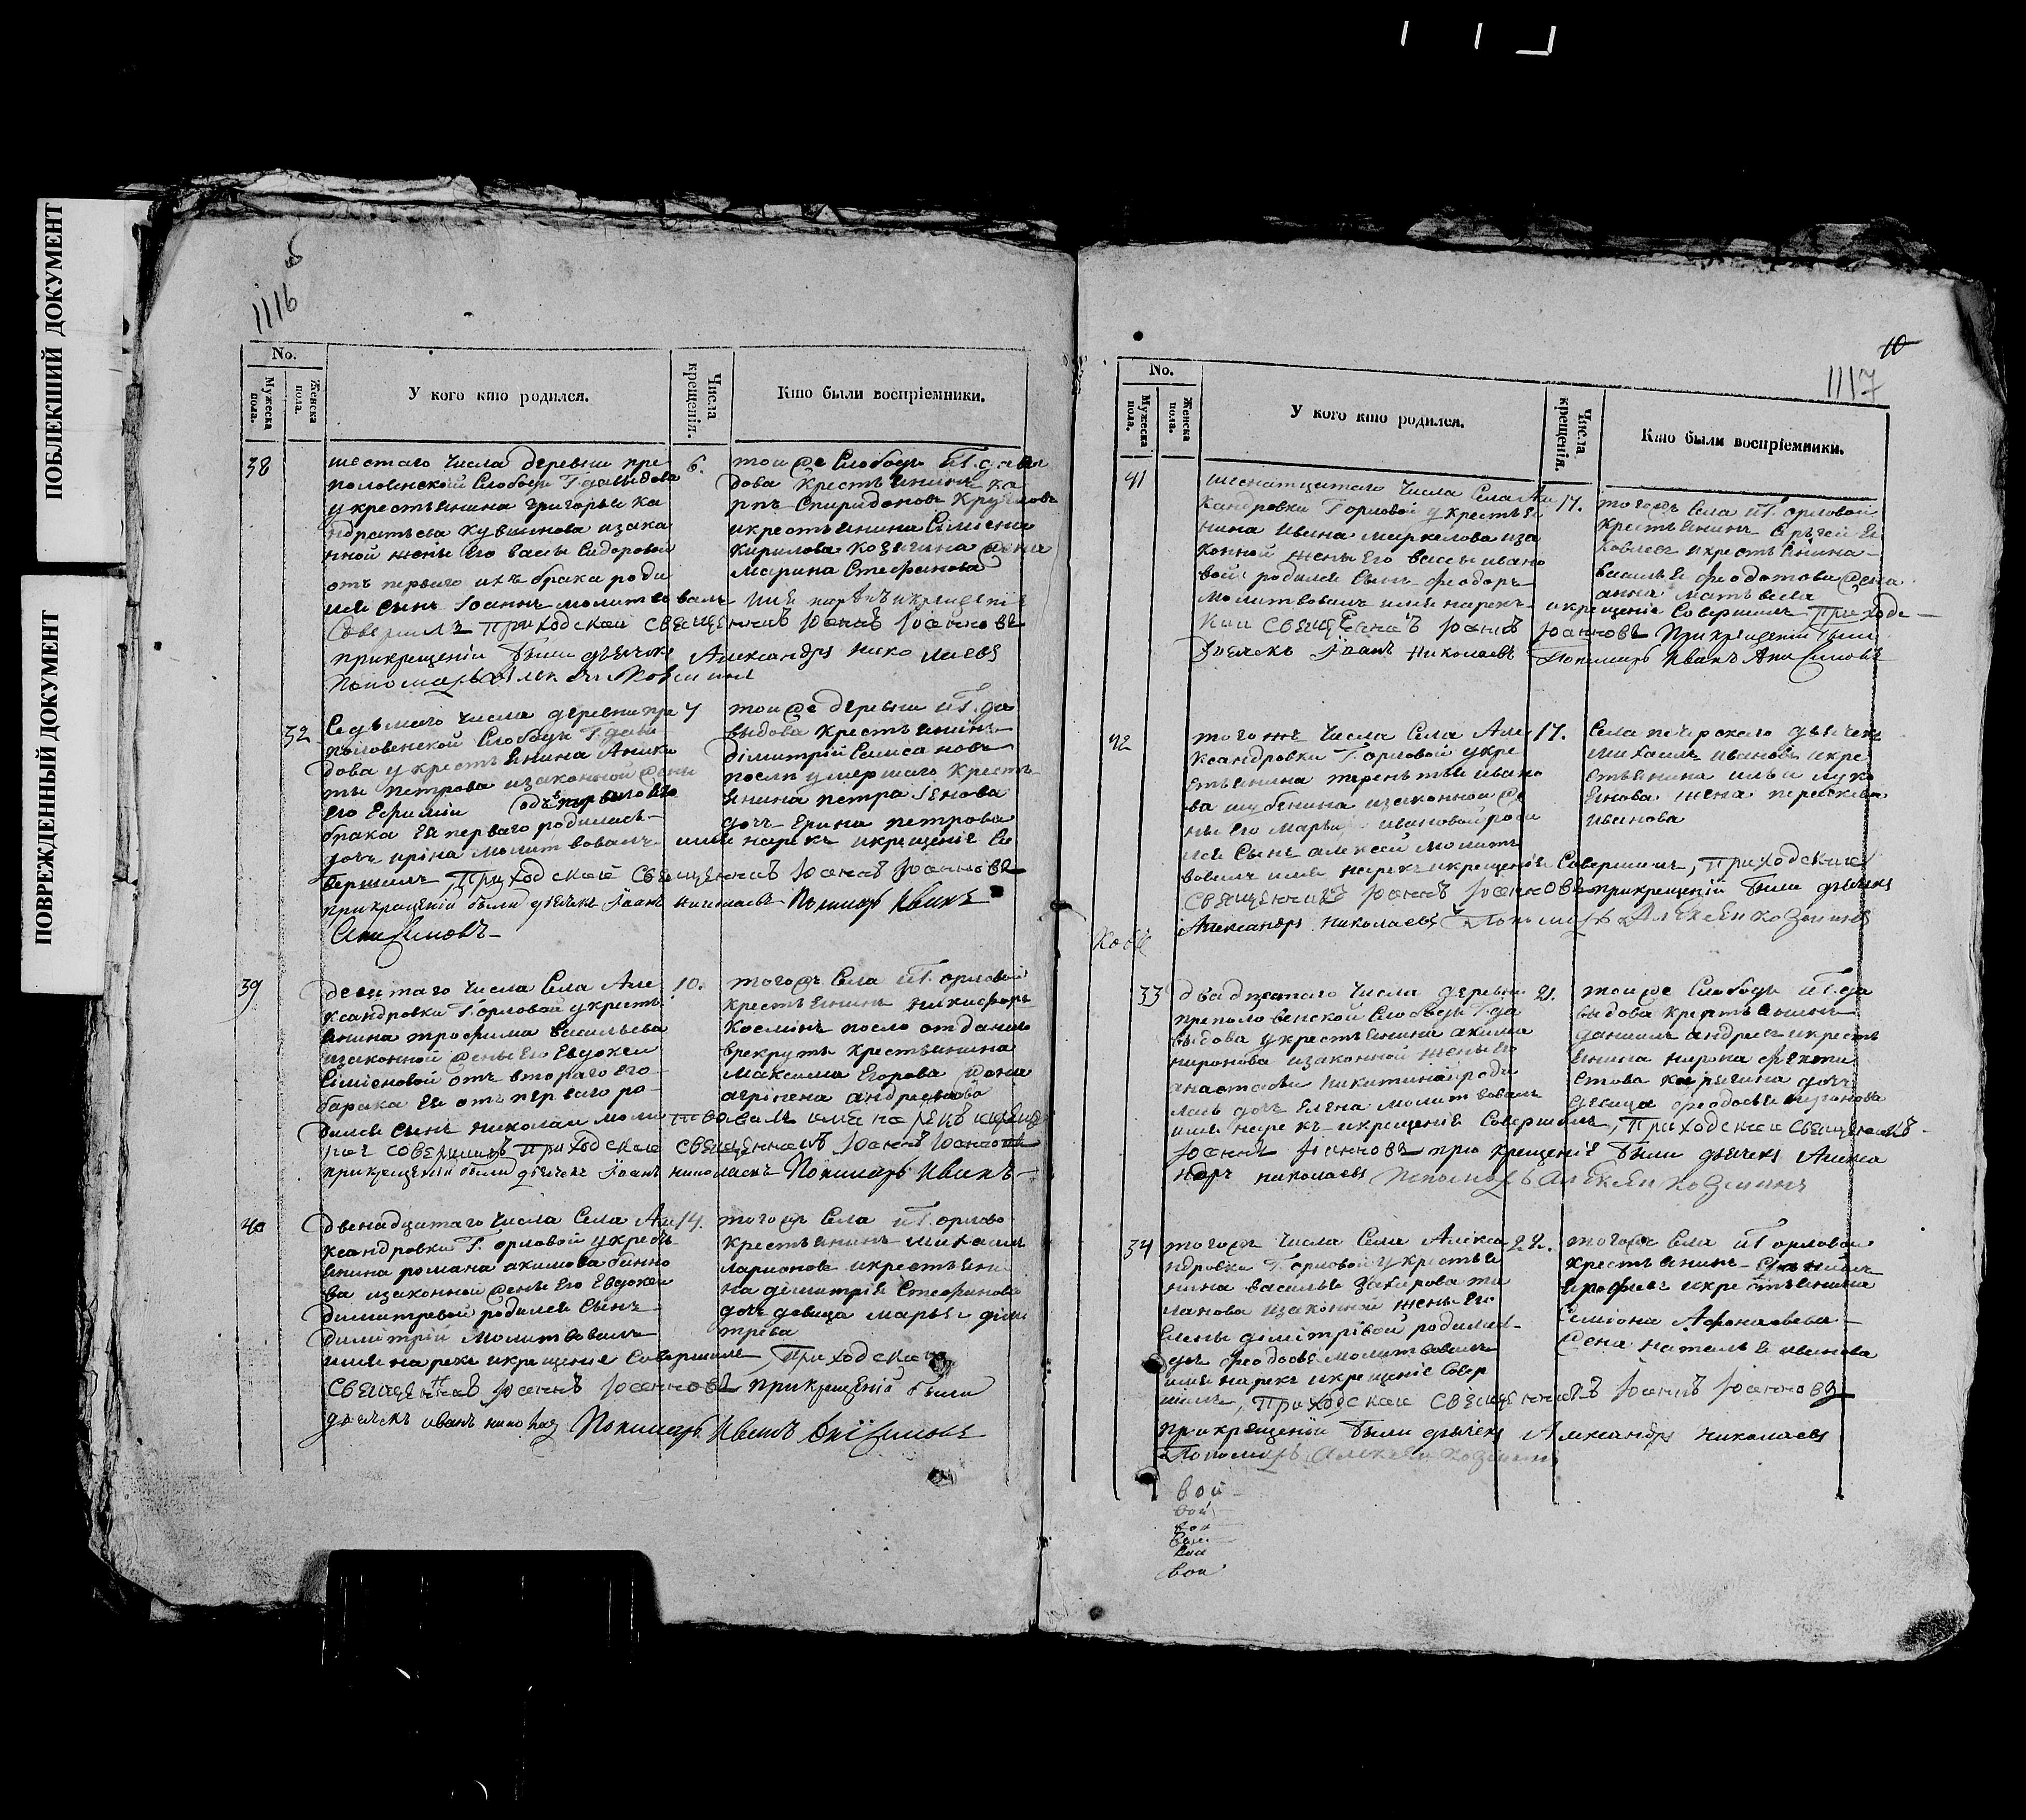 ПОБЛЕКШИЙ ДОКУМЕНТ
ПОВРЕЖДЕННЫЙ ДОКУМЕНТ
1116
No.
Мужеска пола.
Женска пола.
У кого кто родился.
Числа крещенія.
Кто были воспріемники.
38
шестаго числа деревни пре
половенской Слободы Г. давыдова
у крестьянина григорья ка
ндратьева кувшинова изако
нной жены его васы Сидоровой
отъ перваго ихъ брака роди
лся сынъ Іоаннъ молитвовалъ имя нарекъ и крещеніе
Совершилъ приходской священникъ Іоаннъ Іоанновъ
прикрещеніи были дьячекъ Александръ николаевъ
6.
той же Слободы и Г. давы
дова Крестьянинъ ка
рпъ Спиридоновъ Кругловъ
и крестьянина Симіона
Кирилова Козыгина жена
Марина Стефанова
32
Седьмаго числа деревни пре
половенской Слободы Г. давы
дова у крестьянина Аники
ты петрова изаконной жены
его Ефиміи отъ втораго его
брака ея перваго родилась
дочь ирина молитвовалъ имя нарекъ и крещеніе Со
вершилъ Приходской Священникъ Іоаннъ Іоанновъ
прикрещеніи были дьячекъ Іоанъ николаевъ Пономарь Иванъ
Анисимовъ
7
той же деревни и Г. да
выдова Крестьянинъ
димитрій
посли умершаго Кресть
янина петра
дочь Ерина петрова
39
девятаго числа Села Але
ксандровки Г. орловой у кресть
янина трофима васильева
изаконной жены его Евдокеи
Симіоновой отъ втораго его
брака ея отъ перваго ро
дился сынъ николай молитвовалъ имя нарекъ и креще
ніе совершилъ приходской священникъ Іоаннъ Іоанновъ
прикрещеніи были дьячекъ Іоанъ николаевъ Пономарь Иванъ
10.
тогожъ Села и Г. орловой
крестьянинъ никифоръ
Косминъ посло отданаго
врекруты крестьянина
Максима Егорова жена
агрипена андреянова
40
двенадцатаго числа Села Але
ксандровки Г. орловой у кресть
янина романа акимова
ва изаконной жены его Евдокеи
димитревой родился сынъ
димитрій молитвовалъ
имя нарекъ и крещеніе Совершилъ, Приходской
Священникъ Іоаннъ Іоанновъ прикрещеніи были
дьячекъ иванъ николаевъ Пономарь Иванъ Анісимовъ
14.
тогожъ Села и Г. орлово
крестьянинъ михаилъ
ларионовъ и крестьяни
на димитрія Стефанова
дочь девица марья дими
трева
10
1117
No.
Мужеска пола.
Женска пола.
У кого кто родился.
Числа крещенія.
Кто были воспріемники.
41
шеснатцатаго числа Села Але
ксандровки Г. орловой у крестья
нина ивана маркелова иза
конной жены его васы ивано
вой родился сынъ феодоръ
молитвовалъ имя нарекъ и крещеніе Совершилъ Приход
ской Священникъ Іоаннъ Іоанновъ Прикрещеніи были
дьячекъ Іоанъ Николаевъ Пономарь Иванъ Анисимовъ
17.
тогожъ Села и Г. орловой
крестьянинъ Сергей
и крестьянина
василья феодотова жена
анна матвеева
42
тогожъ числа Села Але
ксандровки Г. орловой у кре
стьянина терентья ивано
ва шубенина изаконной же
ны его Марьи ивановой роди
лся сынъ алексей молит
вовалъ имя нарекъ и крещеніе Совершилъ, Приходской
священникъ Іоаннъ Іоанновъ прикрещеніи были дьячекъ
Александръ николаевъ Пономарь Алексей Козминъ
17.
Села печерскаго дьячекъ
михаилъ ивановъ и кре
стьянина ильи луко
янова жена парасковья
иванова
33
двадцатаго числа деревни
преполовенской Слободы Г. да
выдова у крестьянина акима
миронова изаконной жены его
анастасьи никитиной роди
лась дочь елена молитвовалъ
имя нарекъ и крещеніе Совершилъ, Приходской Священникъ
Іоаннъ Іоанновъ при крещеніе были дьячекъ Алекса
ндръ николаевъ Пономарь Алексей Козминъ
21.
той же Слободы и Г. да
выдова крестьянинъ
данилъ андреевъ и кресть
янина мирона
дочь
девица феодосья миронова
34
тогожъ числа Села Алекса
ндровки Г. орловой у крестья
нина василья захарова ми
ланова изаконной жены его
елены димітріевой родилась
дочь феодосья молитвовалъ
имя нарекъ и крещеніе Совер
шилъ, Приходской Священникъ Іоаннъ Іоанновъ
прикрещеніи были дьячекъ Александръ николаевъ
Пономарь Алексей Козминъ
22.
тогожъ Села и Г. орловой
крестьянинъ
ерофеевъ и крестьянина
Симіона Афонасьева
жена наталья иванова
вой
вой
вой